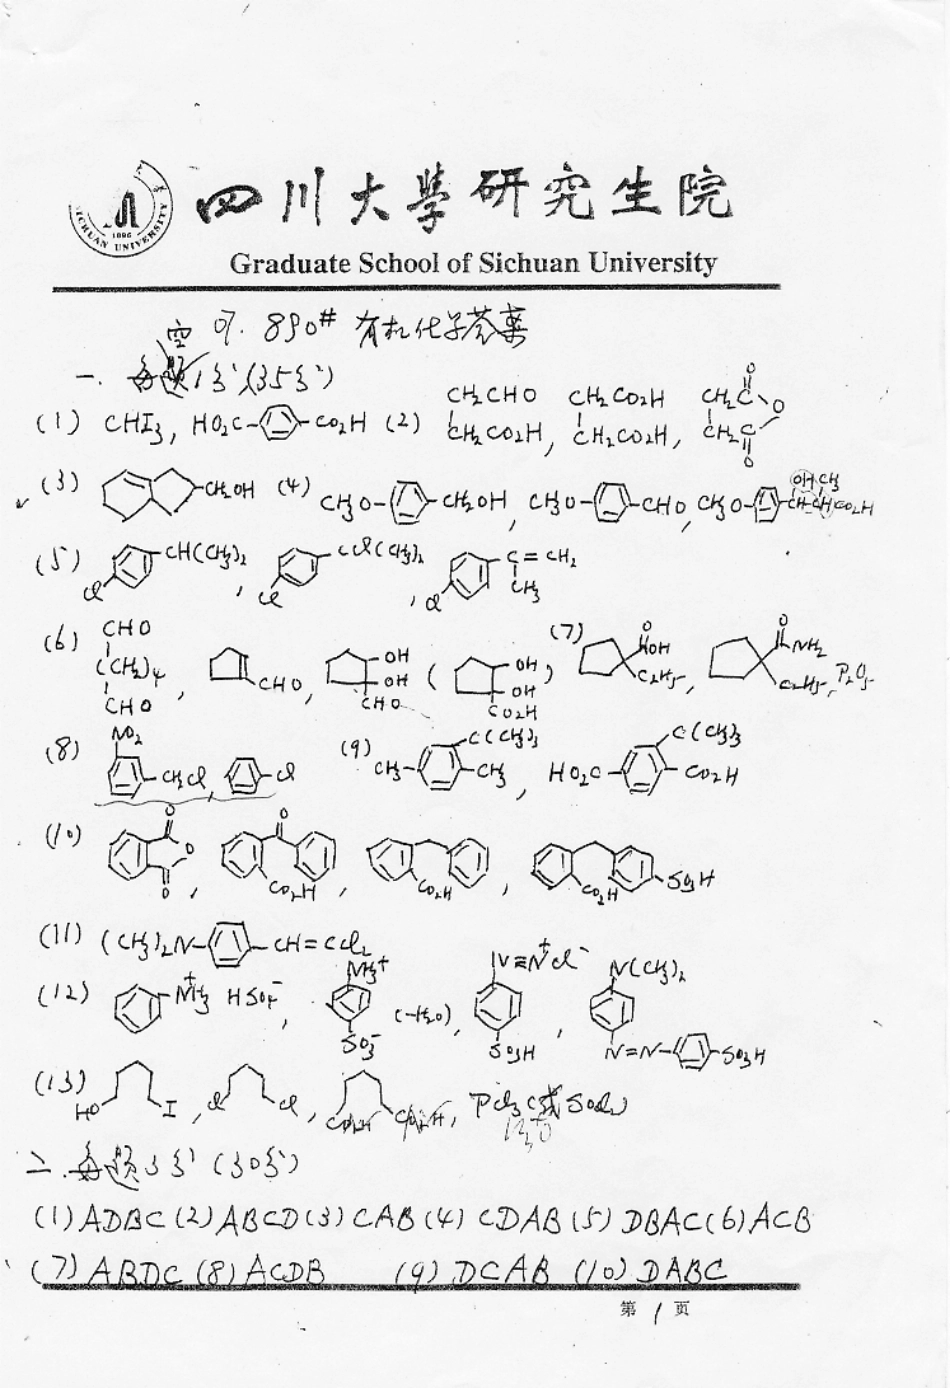 四川大學研究生院
SICHUAN UNIVERSITY
1896
Graduate School of Sichuan University
07. 890# 有机化学答案
一. 每题1分 (35分)
(1) CHI3, HO2C- -CO2H (2) CH2CHO CH2CO2H, CH2CO2H CH2CO2H, CH2C O CH2C O O
(3) -CH2OH (4) CH3O- -CH2OH, CH3O- -CHO, CH3O- OH CH3 CH-CHCO2H
(5) Cl CH(CH3)2, Cl CCl(CH3)2, Cl C=CH2 CH3
(6) CHO (CH2)4 CHO, CHO, OH OH CHO ( OH OH CO2H ) (7) O OH C2H5, O NH2 C2H5, P2O5
(8) NO2 -CH2Cl, -Cl (9) CH3- C(CH3)3 -CH3, HO2C- C(CH3)3 -CO2H
(10) O O O, O CO2H, CO2H, CO2H SO3H
(11) (CH3)2N- -CH=CCl2
(12) -N+H3 HSO4-, NH3+ SO3- (-H2O), N≡N+Cl- SO3H, N(CH3)2 N=N- -SO3H
(13) HO I, Cl Cl, CO2H CO2H, PCl3(或SOCl2)
二. 每题3分 (30分)
(1) ADBC (2) ABCD (3) CAB (4) CDAB (5) DBAC (6) ACB
(7) ABDC (8) ACDB (9) DCAB (10) DABC
第 1 页